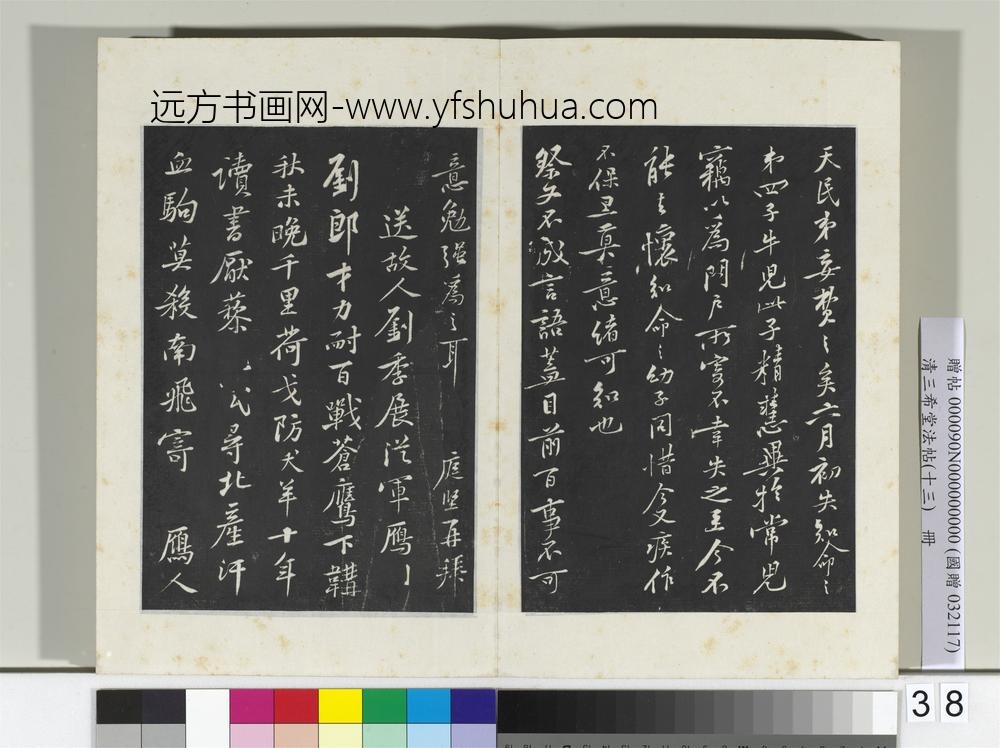 远方书画网-www.yfshuhua.com
天民弟妾
矣六月初失知命
弟四子牛児此子精慧異於常児
竊以為門戶所寄不幸失之至今不
能去懷知命之幼子同惜今又疾作
不保且莫意緒可知也
祭文不成言語蓋目前百事不可
意勉强為之耳 庭堅再拜
送故人劉季展從軍鴈
劉郎才力耐百戰蒼鷹下韝
秋未晚千里荷戈防犬羊十年
讀書厭藜 尋北產汗
血駒莫殺南飛寄 鴈人
贈帖 0000090N000000000 (國贈 032117)
清三希堂法帖(十三) 冊
38